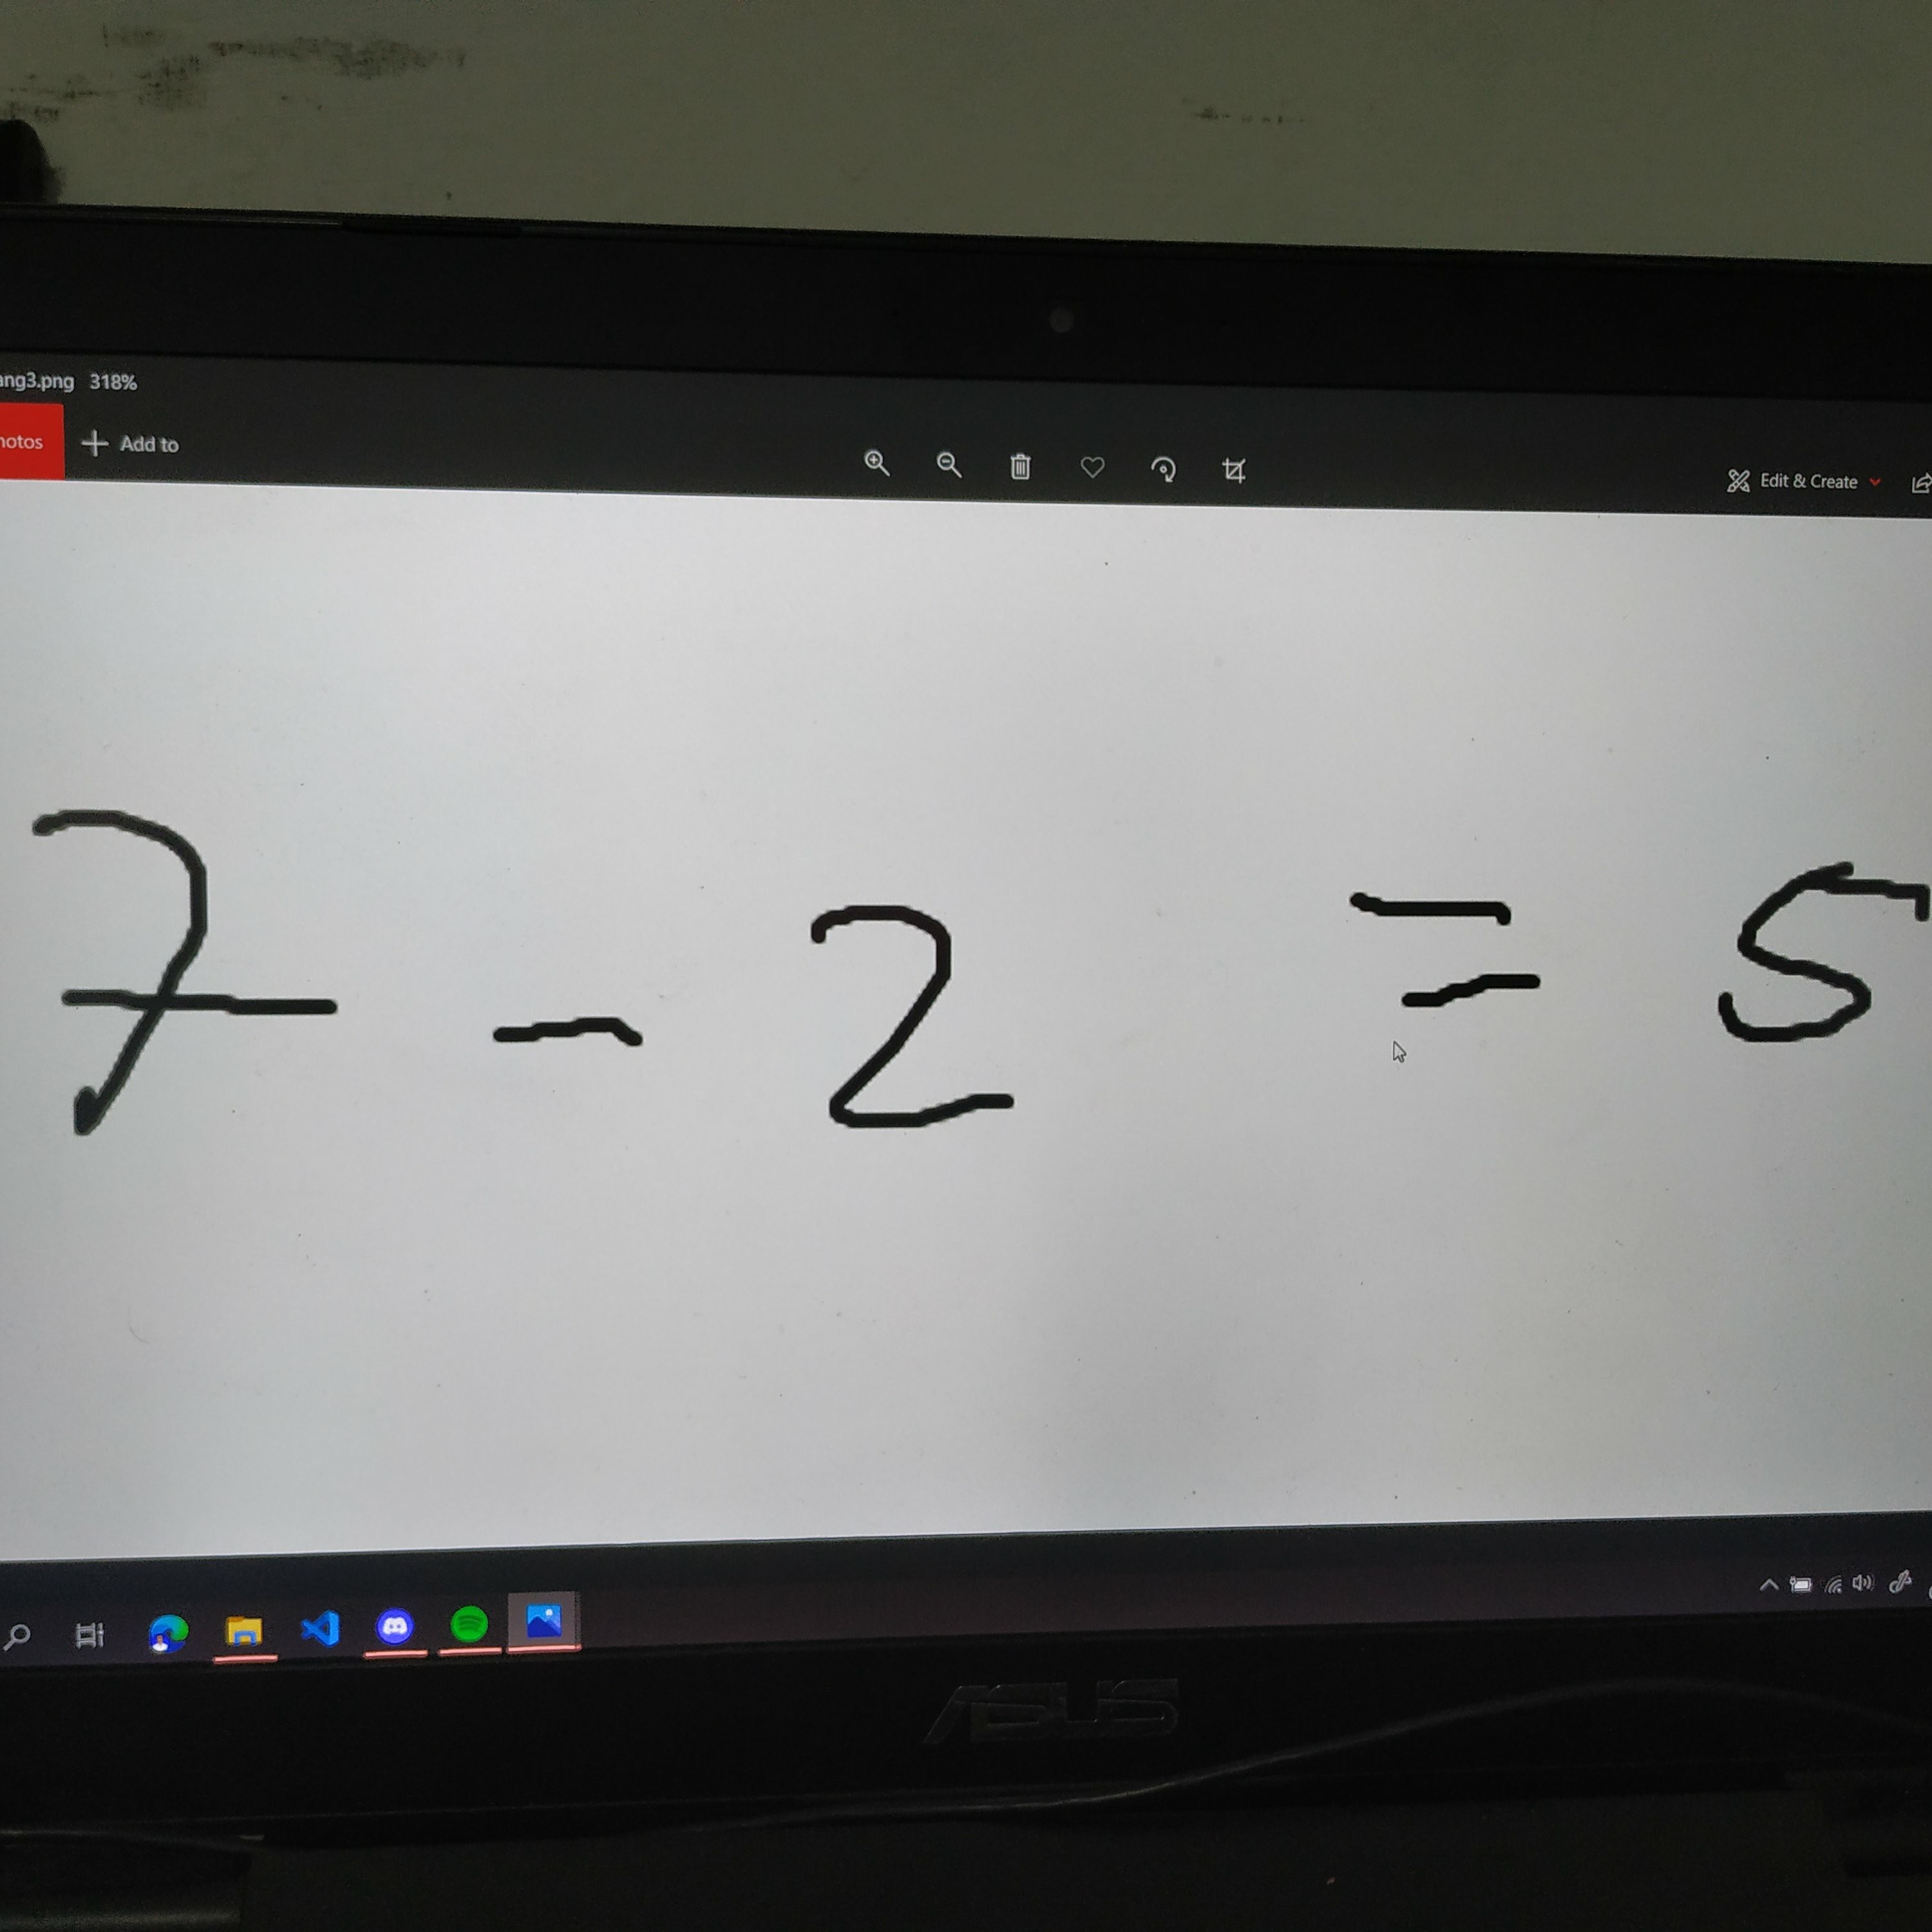 ang3.png 318%
hotos + Add to Edit & Create
7 - 2 = 5
ASUS